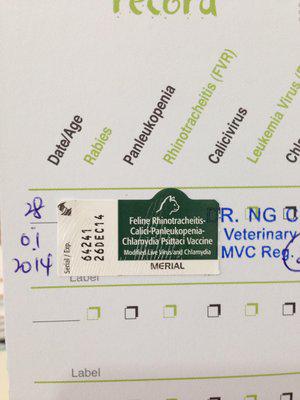 record
Date/Age
Rabies
Panleukopenia
Rhinotracheitis (FVR)
Calicivirus
Leukemia Virus (
28
01
2014
Serial / Exp.
64241
26DEC14
Feline Rhinotracheitis-
Calici-Panleukopenia-
Chlamydia Psittaci Vaccine
Modified Live Virus and Chlamydia
MERIAL
DR. NG C
Veterinary
MVC Reg.
Label
Label